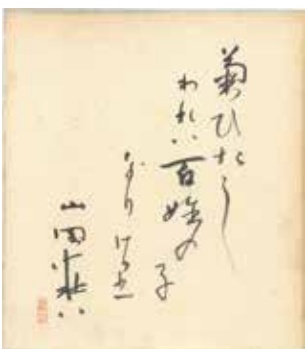 菊ひたし
われハ百姓の子
なりけり
山岡荘八